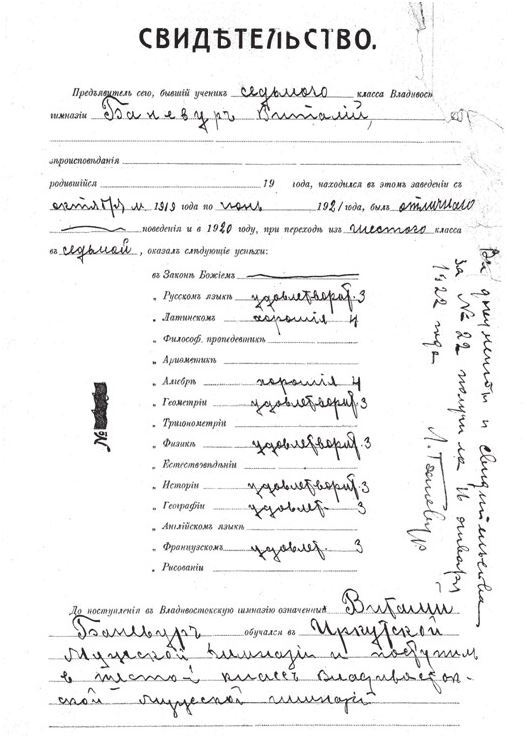 СВИДѢТЕЛЬСТВО.
Предъявитель сего, бывшій ученикъ седьмого класса Владивост
гимназіи Баневуръ Виталій,
вѣроисповѣданія
родившійся 19 года, находился въ этомъ заведеніи съ
октября м 1919 года по іюнь 1921 года, былъ отличнаго
поведенія и въ 1920 году, при переходѣ изъ шестого класса
въ седьмой, оказалъ слѣдующіе успѣхи:
въ Законѣ Божіемъ
„ Русскомъ языкѣ удовлетворит. 3
„ Латинскомъ хорошія 4
„ Философ. пропедевтикѣ
„ Ариѳметикѣ
„ Алгебрѣ хорошія 4
„ Геометріи удовлетворит 3
„ Тригонометріи
„ Физикѣ удовлетворит 3
„ Естествовѣдѣніи
„ Исторіи удовлетворит. 3
„ Географіи удовлет. 3
„ Англійскомъ языкѣ
„ Французскомъ удовлет. 3
„ Рисованіи
№
До поступленія въ Владивостокскую гимназію означенный Виталій
Баневуръ обучался въ Иркутской
Мужской гимназіи и поступилъ
въ шестой классъ Владивосток-
ской Мужской гимназіи
Все документы и свидѣтельства
за № 22 получила 16 января
1922 года Л. Баневуръ